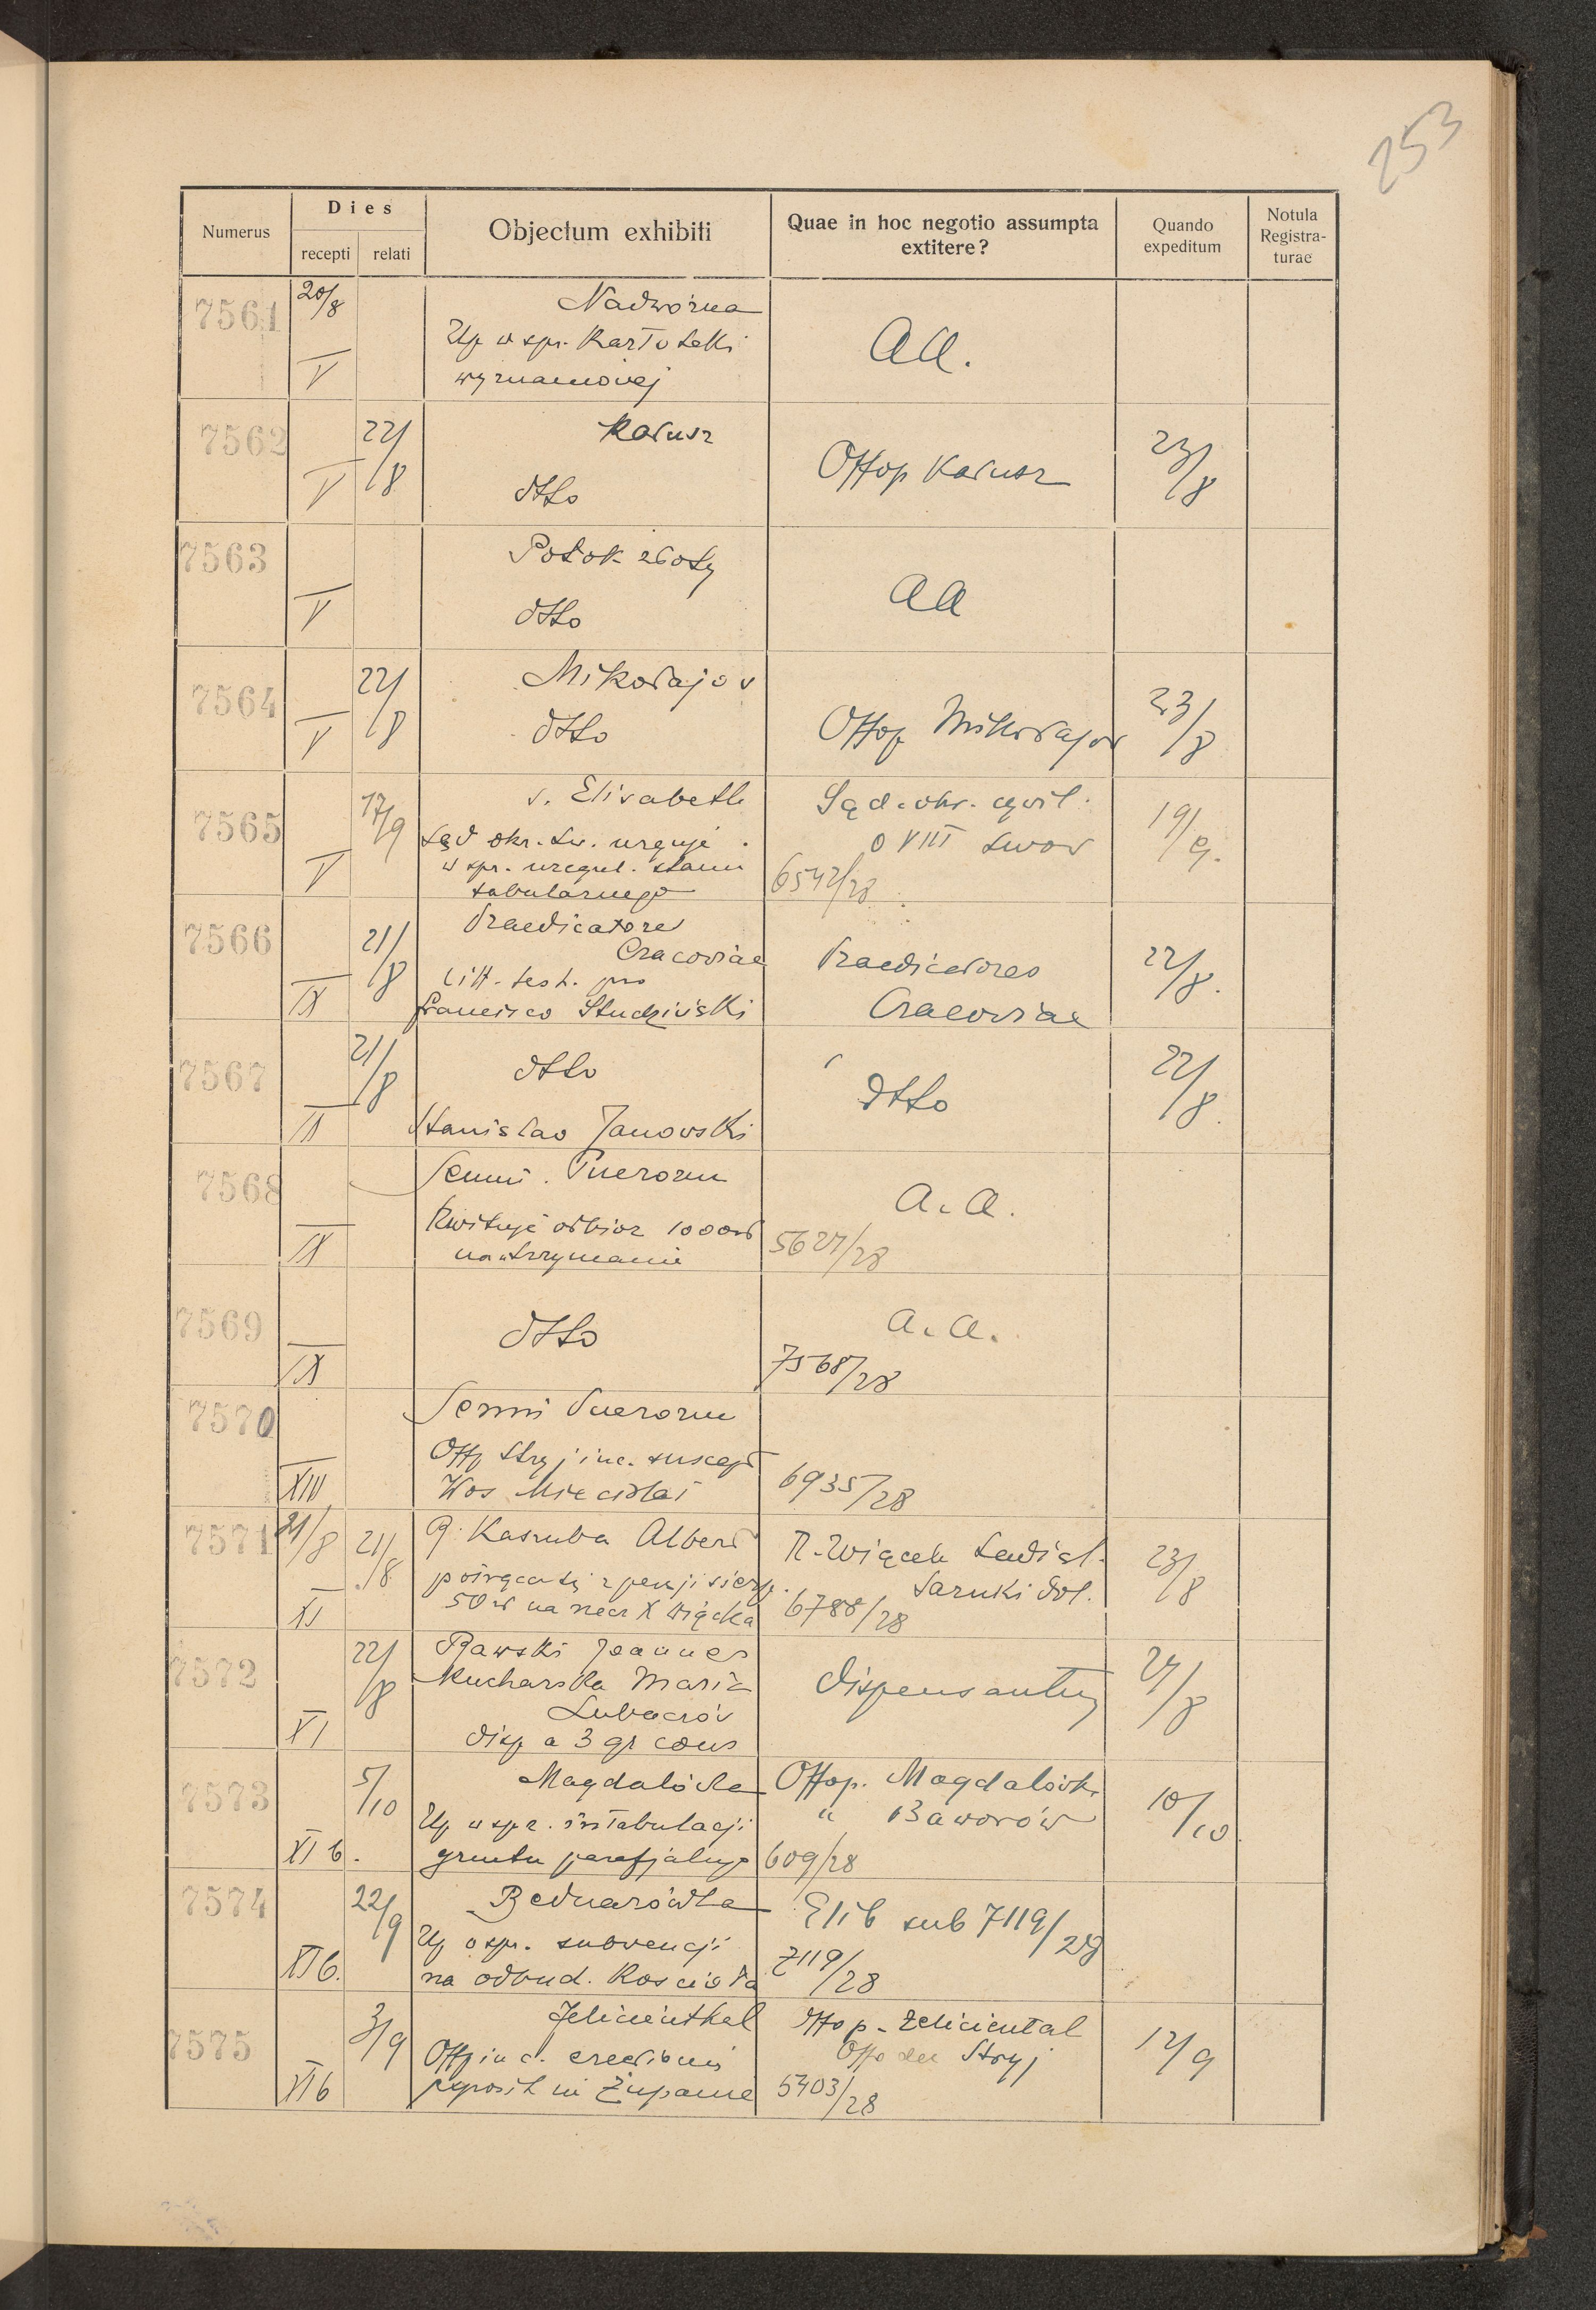 253
Numerus
Dies
recepti
relati
Objectum exhibiti
Quae in hoc negotio assumpta
extitere?
Quando
expeditum
Notula
Registra-
turae
7561
20/8
V
Nadwórna
Up w spr. Kartoteki
wyznaniowej
AA.
7562
V
22/8
Kałusz
dtto
Offop Kałusz
23/8
7563
V
Potok złoty
dtto
AA
7564
V
22/8
Mikołajów
dtto
Offop Mikołajów
23/8
7565
V
17/9
s. Elisabeth
Sąd okr. Lw. urguje
w spr. uregul. stanu
tabularnego
Sąd. okr. cywil.
O VIII Lwow
6542/28
19/9.
7566
IX
21/8
Praedicatores
Cracoviae
litt. test. pro
Francisco Studziński
Praedicatores
Cracoviae
22/8.
7567
IX
21/8
dtto
Stanislao Janowski
dtto
22/8.
7568
IX
Semin. Puerorum
Kwituje odbior 1000zł
na utrzymanie
A. A.
5627/28
7569
IX
dtto
A. A.
7568/28
7570
XIV
Semin Puerorum
Off Stryj inc. suscept
Wos Miecislai
6935/28
7571
21/8
XI
21/8
Kaszuba Albert
potrącenie z pensji sierp.
50 zł na rzecz X Wiącka
R. Wiącek Ladisl.
Sarnki dol.
6788/28
23/8
7572
XI
22/8
Rawski Joannes
Kucharska Maria
Lubaczów
disp a 3 gr cons
Dispensantur
24/8
7573
XI b.
5/10
Magdalówka
Up w spr. intabulacji
gruntu parafjalnego
Offop. Magdalówk.
" Baworów
609/28
10/10.
7574
XI b.
22/9
Bednarówka
Up w spr. subvencji
na odbud. Kościoła
Elib sub 7119/28
7119/28
7575
XI b
3/9
Felicienthal
Off inc. erectionis
exposit in Żupanie
Offop. Feliciental
Stryj
5403/28
12/9